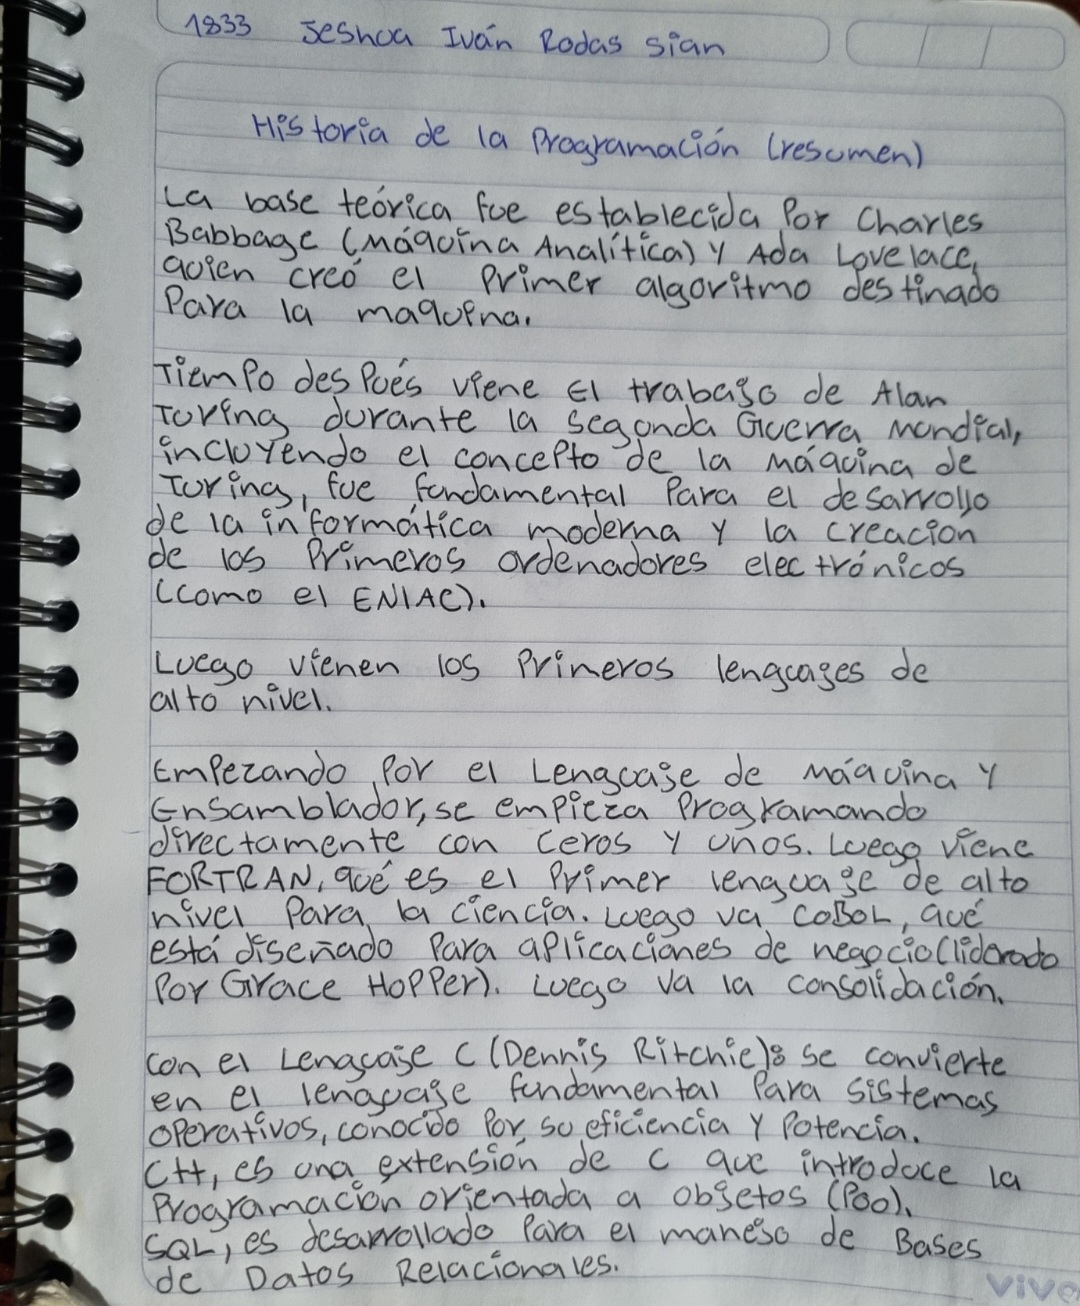 1833 Jeshua Iván Rodas Sian
Historia de la Programación (resumen)
La base teórica fue establecida Por Charles
Babbage (Máquina Analítica) y Ada Lovelace,
quien creó el Primer algoritmo destinado
Para la maquina.
Tiempo después viene El trabajo de Alan
Turing durante la segunda Guerra Mundial,
incluyendo el concepto de la máquina de
Turing, fue fundamental Para el desarrollo
de la informática moderna y la creacion
de los Primeros ordenadores electrónicos
(como el ENIAC).
Luego vienen los Primeros lenguajes de
alto nivel.
Empezando Por el Lenguaje de Máquina y
Ensamblador, se empieza Programando
directamente con Ceros y unos. Luego viene
FORTRAN, qué es el Primer lenguaje de alto
nivel Para la ciencia. Luego va COBOL, qué
está diseñado Para aplicaciones de negocio (liderado
Por Grace Hopper). Luego va la consolidación.
Con el Lenguaje C (Dennis Ritchie): se convierte
en el lenguaje fundamental Para sistemas
operativos, conocido Por su eficiencia y Potencia.
C++, es una extensión de C que introduce la
Programación orientada a objetos (POO).
SQL, es desarrollado Para el manejo de Bases
de Datos Relacionales.
vive